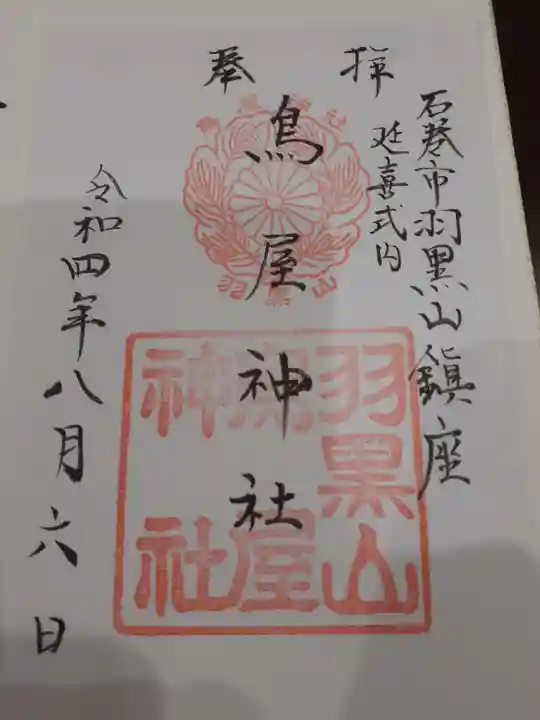 奉拝
石巻市羽黒山鎮座
延喜式内
鳥屋神社
令和四年八月六日
羽黒山
鳥屋
神社
羽黒山